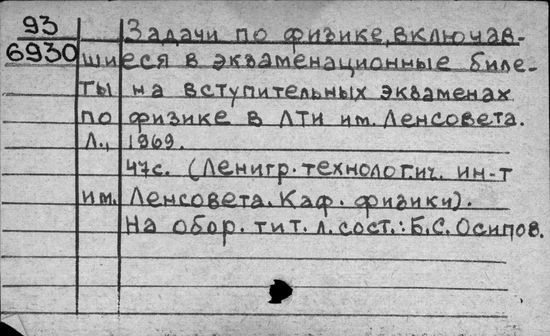 93
6930
Задачи по физике, включав-
шиеся в экзаменационные биле-
ты на вступительных экзаменах
по физике в ЛТИ им. Ленсовета.
Л., 1969.
47с. (Ленигр. технологич. ин-т
им. Ленсовета. Каф. физики).
На обор. тит. л. сост.: Б.С. Осипов.